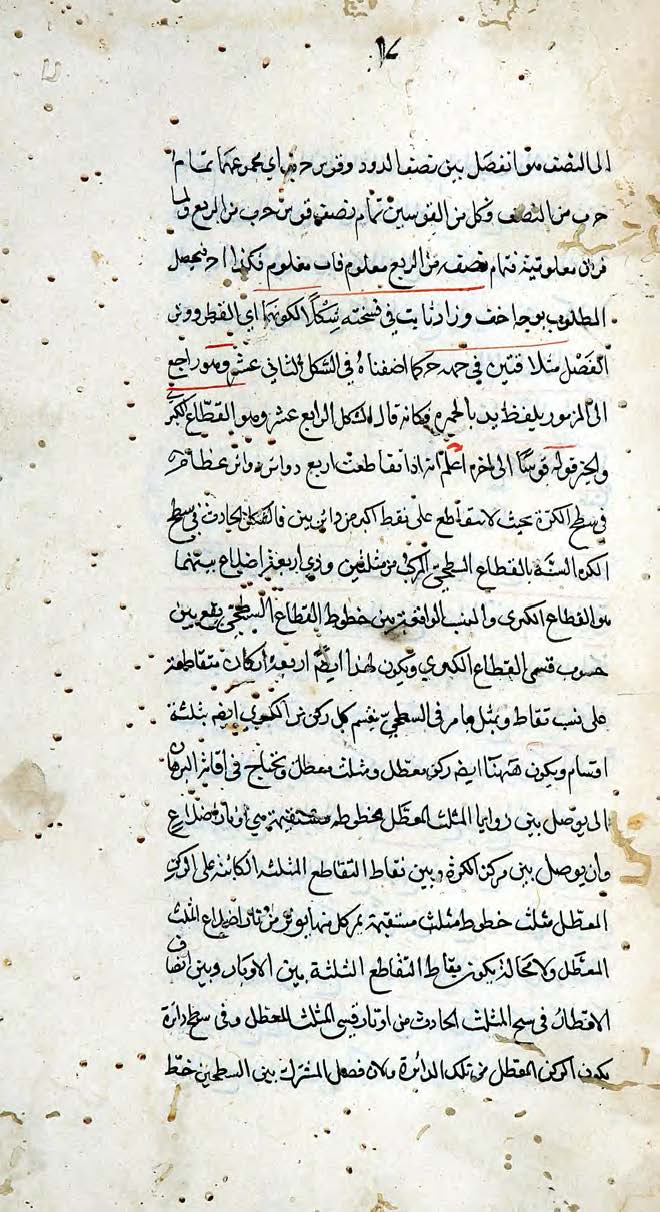 ١٧
الى النصف هو انفصل بين نصف الدور وقوس ح ب اي مجموعهما تمام
ح ب من النصف وكل من القوسين تمام نصف قوس ح ب من الربع ولما
معلومتين فتمام نصفه من الربع معلوم معلوم فكذا ا ح فيحصل
المطلوب بوجه اخف وزاد ثابت في نسخته شكلا لكونهما اي القطر ووتر
الفصل متلاقيتين في جهة ح كما اضفناه في الشكل الثاني عشر وهو راجع
الى المزبور بلفظ بالحمرة فكانه قال الشكل الرابع عشر وهو القطاع الكرى
قوله قوسا الى اخره اعلم انه اذا تقاطعت اربع دوائر عظام
في سطح الكرة بحيث لا يتقاطع على نقط اكثر من دائرتين فالشكل الحادث في سطح
الكرة بالقطاع السطحي المركب من مثلثين وذي اربعة اضلاع بينهما
هو القطاع الكرى والنسب الواقعة بين خطوط القطاع السطحي يقع بين
جيوب قسي القطاع الكروي ويكون لهذا ايضا اربعة اركان متقاطعة
على نقاط وبمثل ما مر في السطحي ينقسم كل ركن من الكروي ايضا بثلثة
اقسام ويكون ههنا ايضا ركن معطل ومثلث معطل ونحتاج في اقامة البرهان
الى يوصل بين زوايا المثلث المعطل بخطوط مستقيمة هي اوتار اضلاع
وان يوصل بين مركز الكرة وبين نقاط التقاطع الثلثة الكائنة على الركن
المعطل مثلث خطوط مثلث مستقيمة يمر كل منها بوتر من اوتار اضلاع المثلث
المعطل ولا محالة يكون نقاط التقاطع الثلثة بين الاوتار وبين انصاف
الاقطار في سطح المثلث الحادث من اوتار قسي المثلث المعطل وفي سطح دائرة
يكون الركن المعطل من تلك الدائرة ولان فصل المشترك بين السطحين خط